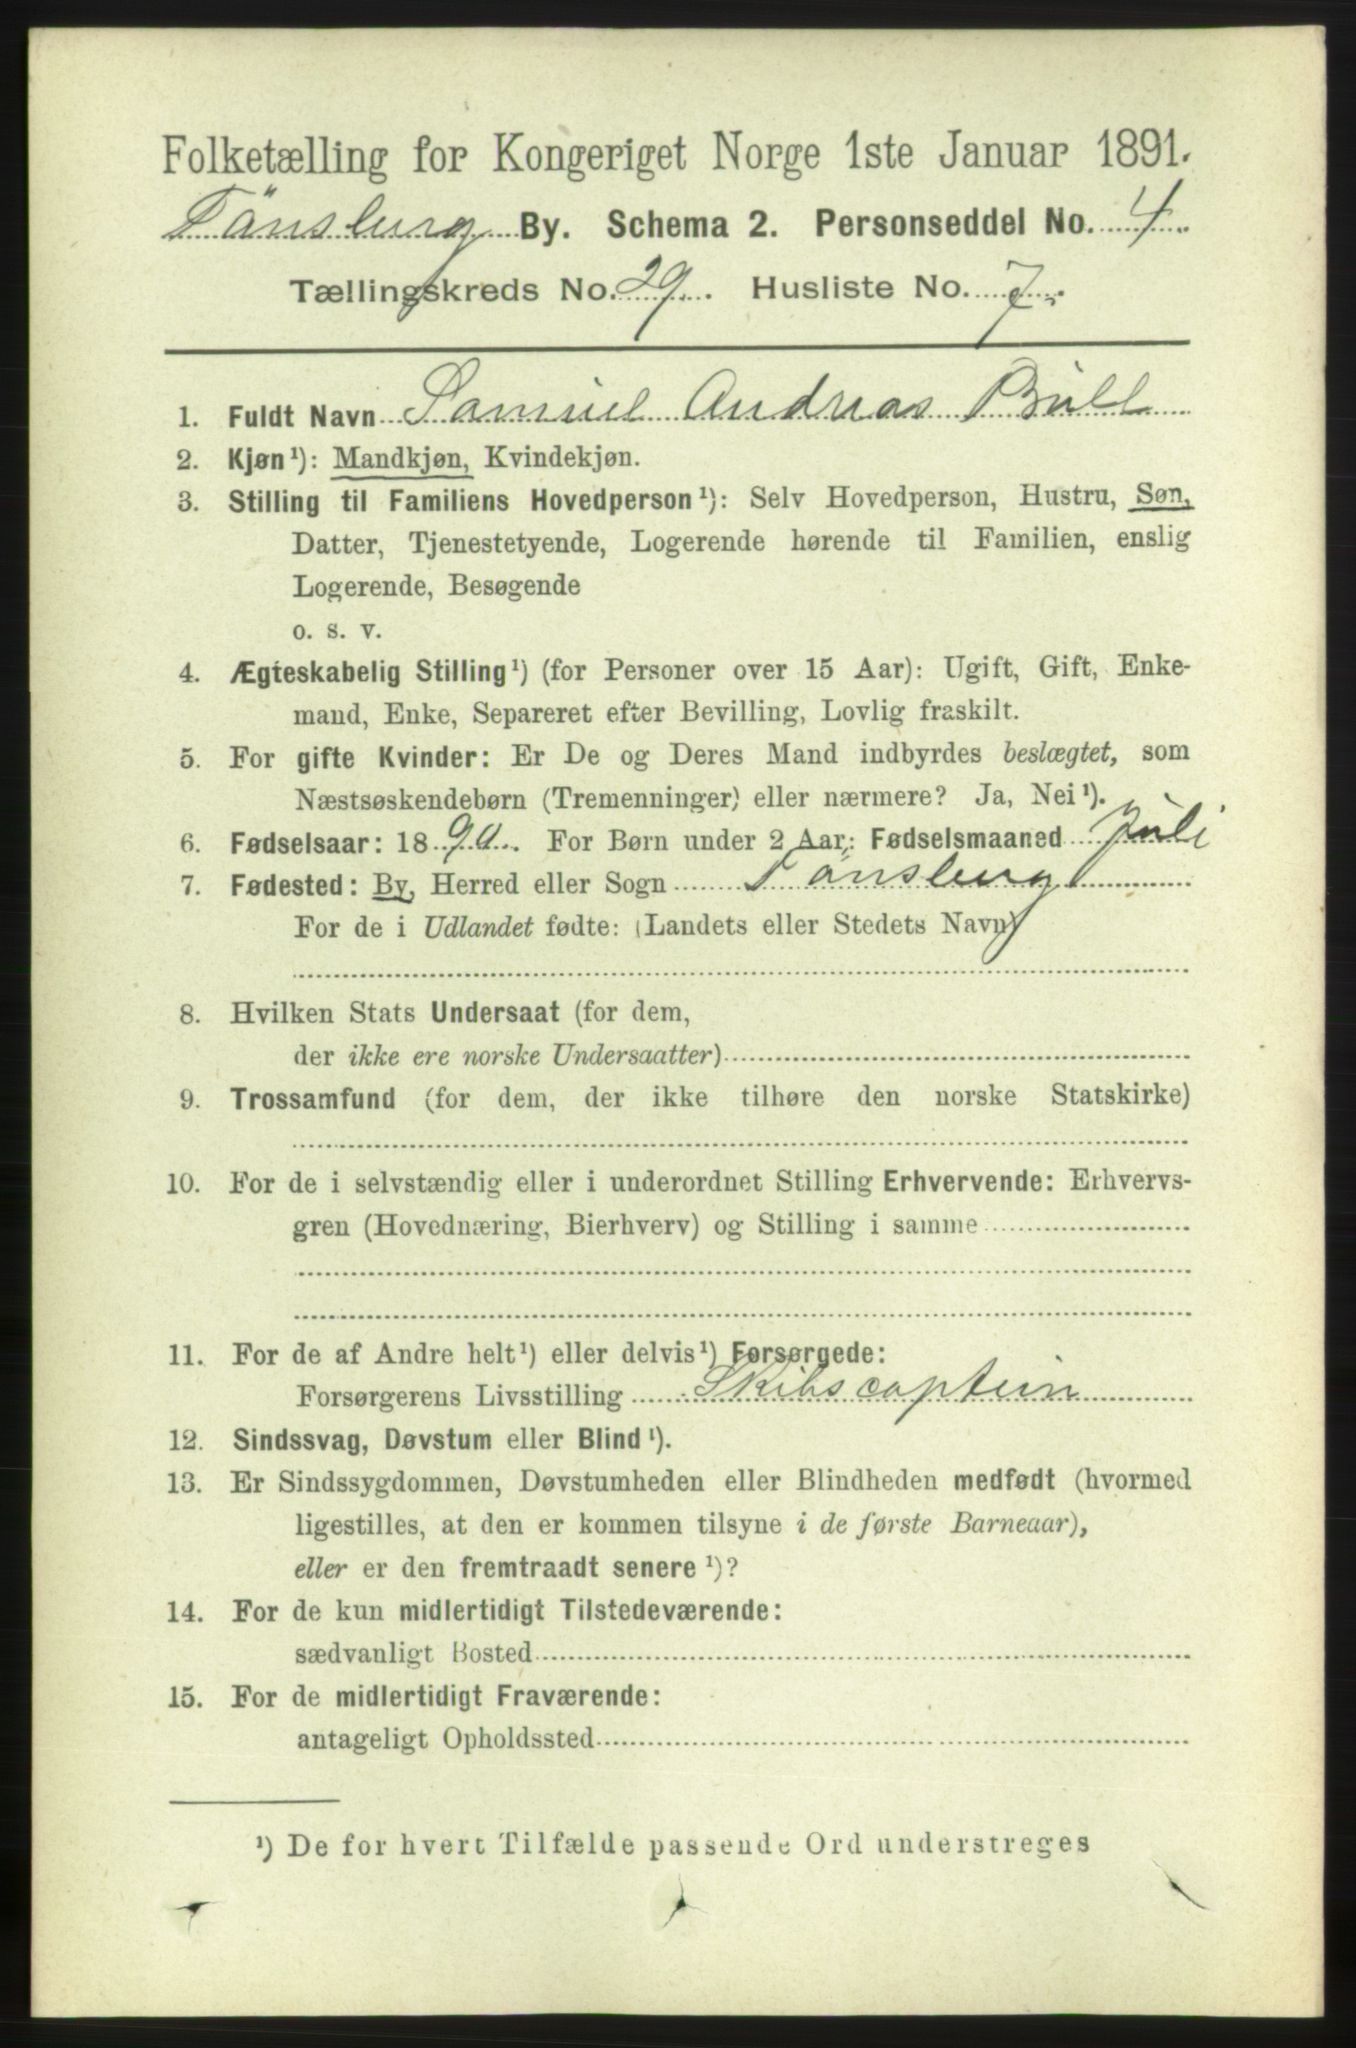 Folketælling for Kongeriget Norge 1ste Januar 1891.
Tönsberg By. Schema 2. Personseddel No. 4.
Tællingskreds No. 29. Husliste No. 7.
1. Fuldt Navn Samuel Andreas Bull
2. Kjøn¹): Mandkjøn, Kvindekjøn.
3. Stilling til Familiens Hovedperson¹): Selv Hovedperson, Hustru, Søn,
Datter, Tjenestetyende, Logerende hørende til Familien, enslig
Logerende, Besøgende
o. s. v.
4. Ægteskabelig Stilling¹) (for Personer over 15 Aar): Ugift, Gift, Enke-
mand, Enke, Separeret efter Bevilling, Lovlig fraskilt.
5. For gifte Kvinder: Er De og Deres Mand indbyrdes beslægtet, som
Næstsøskendebørn (Tremenninger) eller nærmere? Ja, Nei¹).
6. Fødselsaar: 1890. For Børn under 2 Aar: Fødselsmaaned Juli
7. Fødested: By, Herred eller Sogn Tönsberg
For de i Udlandet fødte: (Landets eller Stedets Navn)
8. Hvilken Stats Undersaat (for dem,
der ikke ere norske Undersaatter)
9. Trossamfund (for dem, der ikke tilhøre den norske Statskirke)
10. For de i selvstændig eller i underordnet Stilling Erhvervende: Erhvervs-
gren (Hovednæring, Bierhverv) og Stilling i samme
11. For de af Andre helt¹) eller delvis¹) Forsørgede:
Forsørgerens Livsstilling Skibscaptein
12. Sindssvag, Døvstum eller Blind¹).
13. Er Sindssygdommen, Døvstumheden eller Blindheden medfødt (hvormed
ligestilles, at den er kommen tilsyne i de første Barneaar),
eller er den fremtraadt senere¹)?
14. For de kun midlertidigt Tilstedeværende:
sædvanligt Bosted
15. For de midlertidigt Fraværende:
antageligt Opholdssted
¹) De for hvert Tilfælde passende Ord understreges